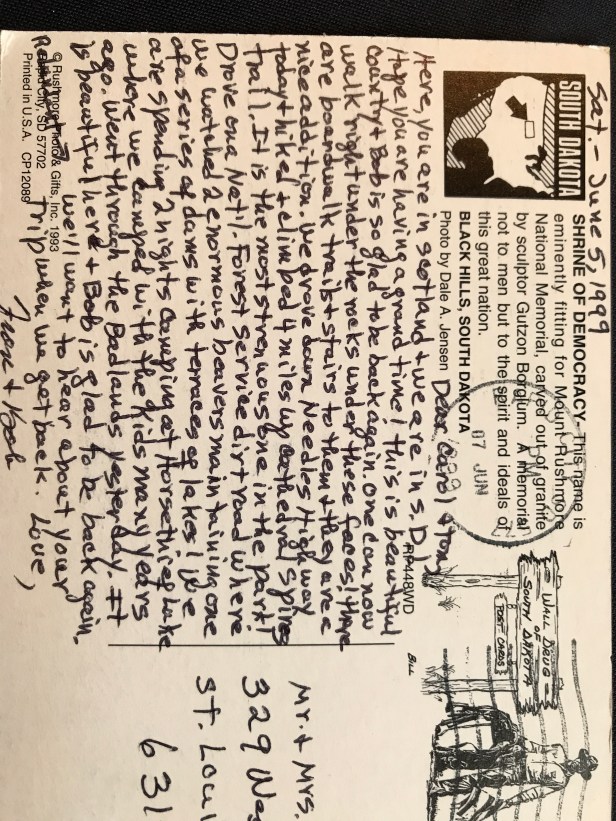 Sat. - June 5, 1999
SOUTH DAKOTA
SHRINE OF DEMOCRACY - This name is
eminently fitting for Mount Rushmore
National Memorial, carved out of granite
by sculptor Gutzon Borglum. A Memorial
not to men but to the spirit and ideals of
this great nation.
BLACK HILLS, SOUTH DAKOTA
Photo by Dale A. Jensen
07 JUN
WALL DRUG
OF
SOUTH DAKOTA
POST CARDS
RP448WD
BILL
Dear Carol & Tom,
Here, you are in Scotland & we are in S.D.!
Hope you are having a grand time! This is beautiful
country & Bob is so glad to be back again. One can now
walk right under the rocks under these faces! There
are boardwalk trails & stairs to them & they are a
nice addition. We drove down Needles Highway
today & hiked & climbed 4 miles up Cathedral Spires
Trail. It is the most strenuous one in the park!
Drove on a Nat'l. Forest Service dirt road where
we watched 2 enormous beavers maintaining one
of a series of dams with terraces of lakes! We
are spending 2 nights camping at Horsethief Lake
where we camped with the kids many years
ago. Went through the Badlands yesterday. It
is beautiful here & Bob is glad to be back again.
We'll want to hear about your
trip when we get back. Love,
Mr. & Mrs.
329
St. Loui
631
© Rushmore Photo & Gifts, Inc. 1993
Rapid City, SD 57702
Printed in U.S.A. CP12089